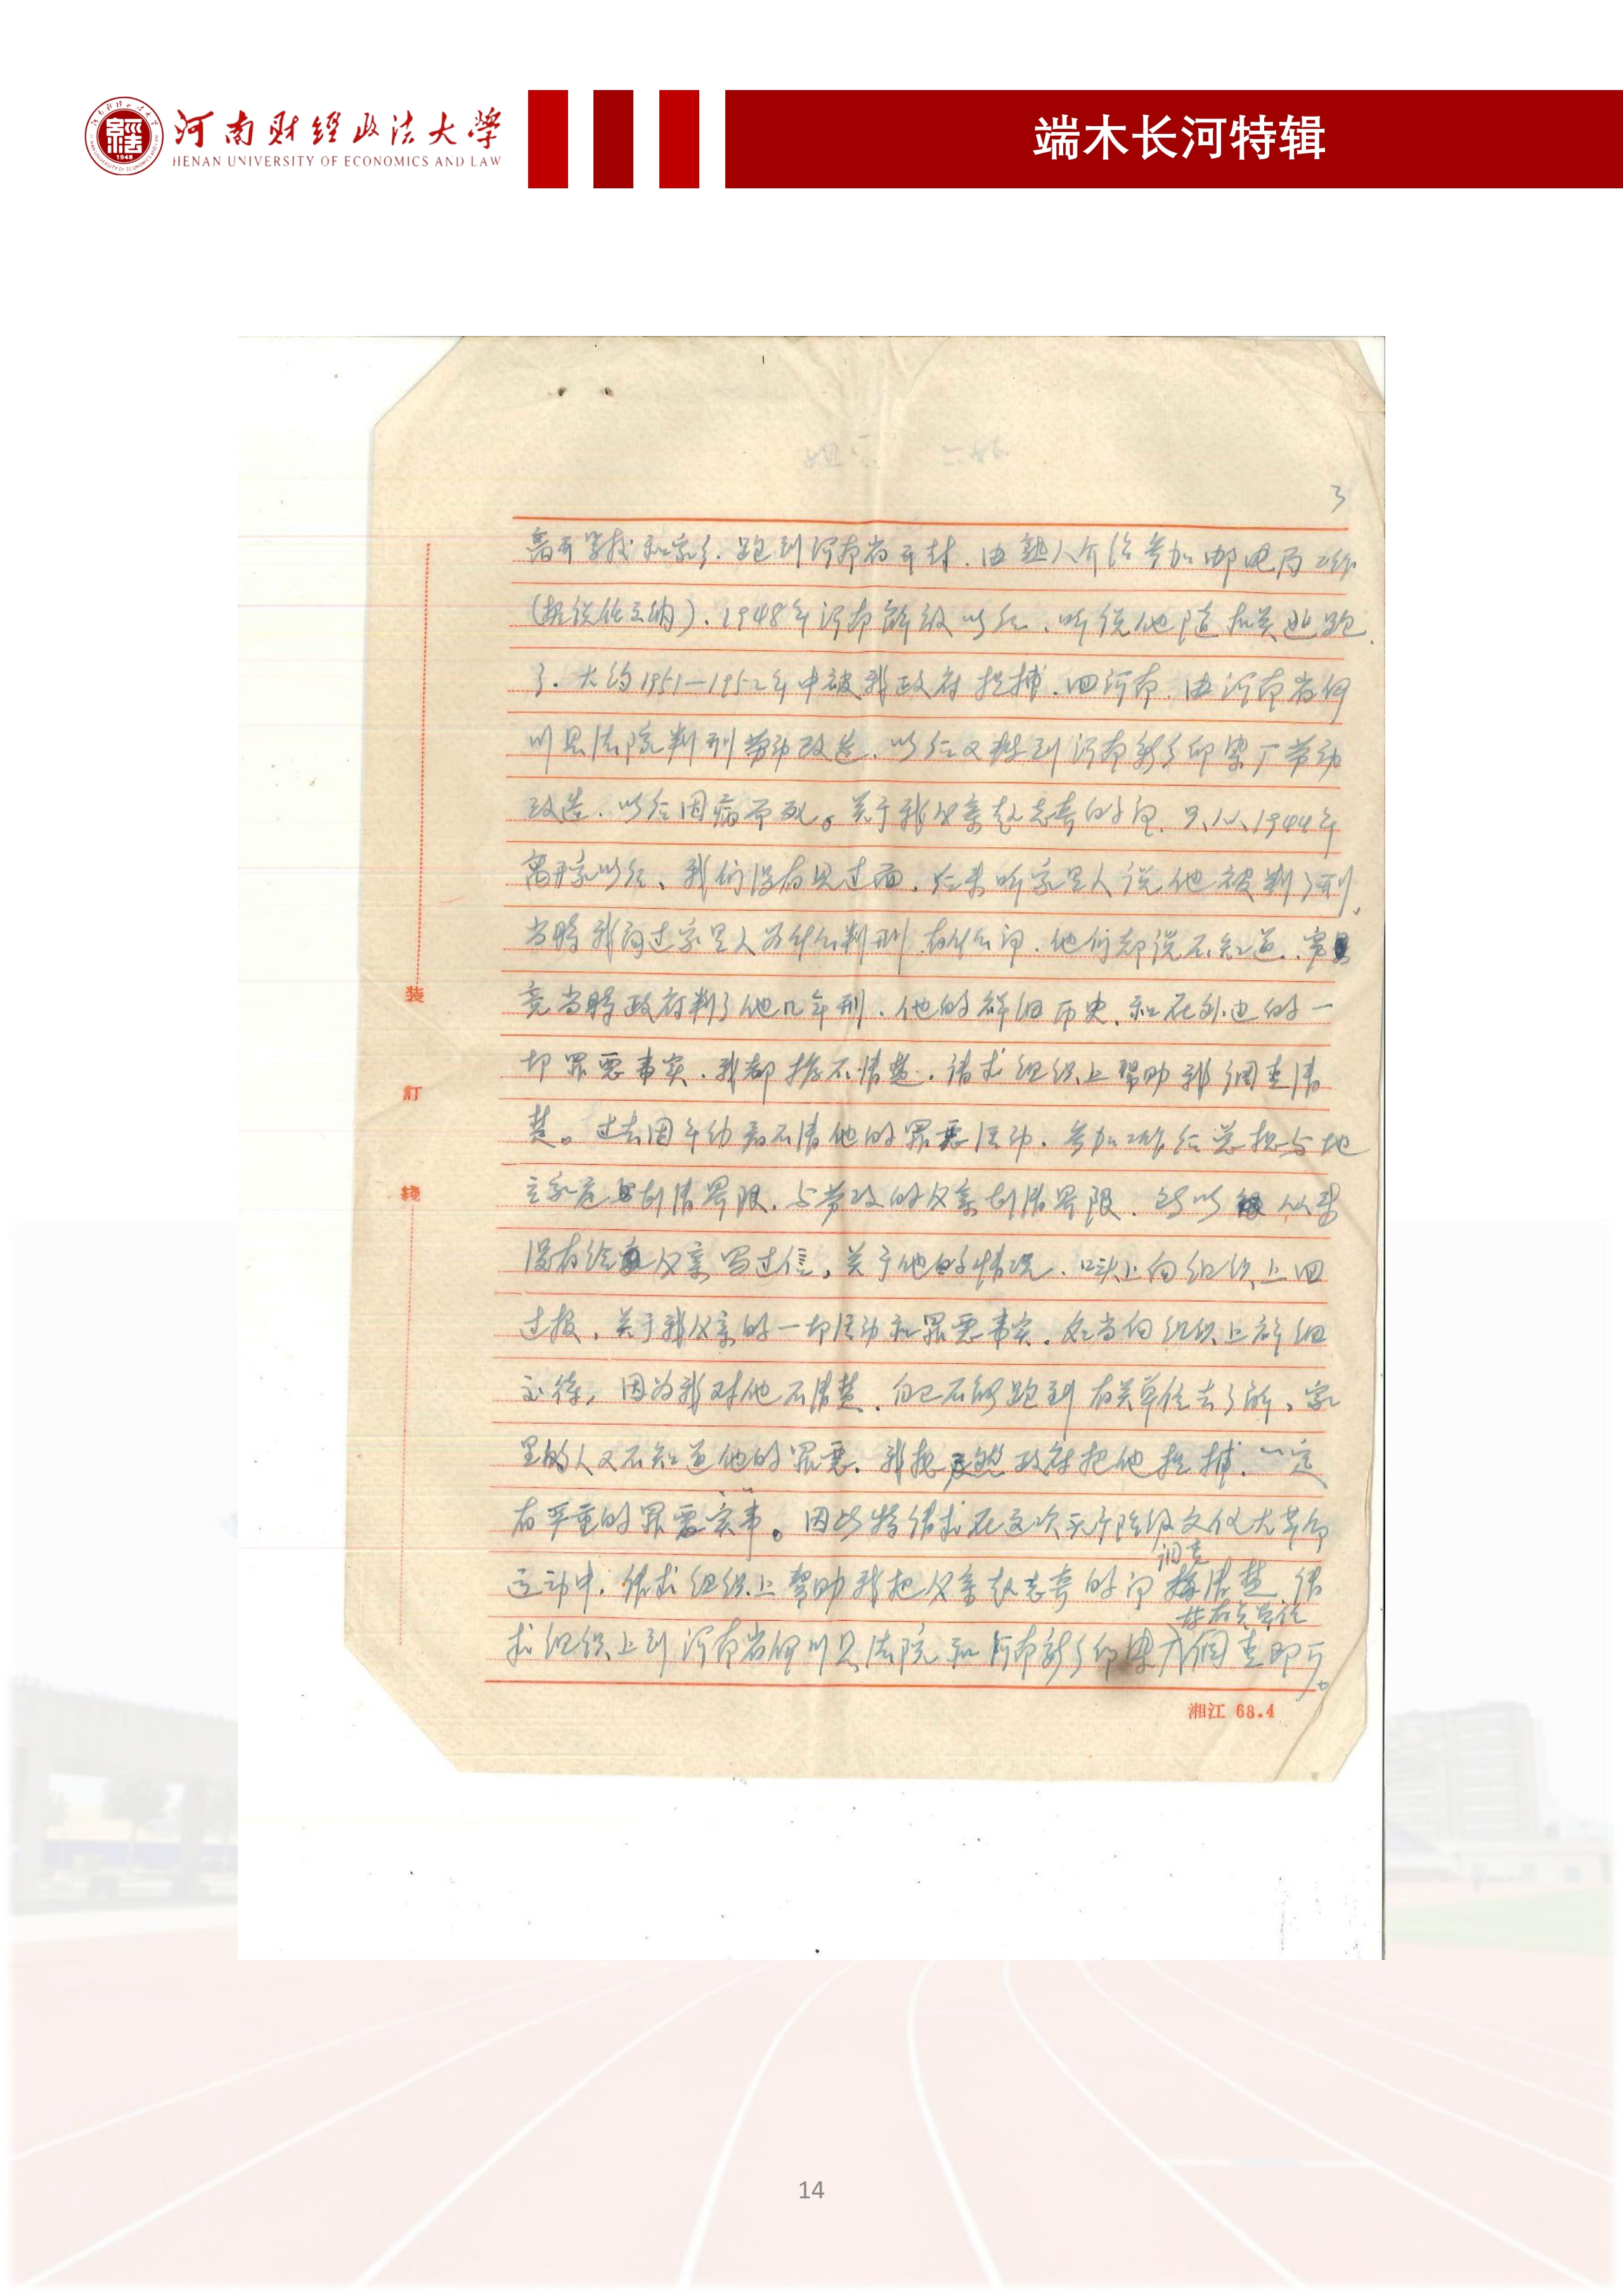 河南财经政法大学
HENAN UNIVERSITY OF ECONOMICS AND LAW
端木长河特辑
3
离开学校和家了.跑到河南省开封.由熟人介绍参加邮电局工作
(据说任出纳).1948年河南解放以后.听说他随机关逃跑
了.大约1951—1952年中被我政府抓捕.回河南.由河南省
川县法院判刑劳动改造.以后又押到河南新乡印染厂劳动
改造.以后因病而死。关于我父亲赵志奇的问.只从1944年
离开家以后、我们没有见过面.后来听家里人说他被判了刑,
当時我问过家里人为什么判刑.有什么问.他们都说不知道.究
竟当時政府判了他几年刑.他的详细历史、和在外边的一
切罪恶事实.我都搞不清楚.请求组织上帮助我调查清
楚。过去因年幼看不清他的罪恶活动.参加工作后总想与地
主家庭划清界限.与劳改的父亲划清界限.所以从来
没有给父亲写过信。关于他的情况.口头上向组织上回
过报。关于我父亲的一切活动和罪恶事实.应当向组织上详细
交待,因为我对他不清楚.自己不能跑到有关单位去了解、家
里的人又不知道他的罪恶.我想既然政府把他抓捕.一定
有严重的罪恶实事。因此特请求在这次无产阶级文化大革命
运动中.请求组织上帮助我把父亲赵志奇的问调查清楚.请
求组织上到河南省川县法院和河南新乡印染厂等有关单位调查即可。
装
訂
綫
湘江 68.4
14